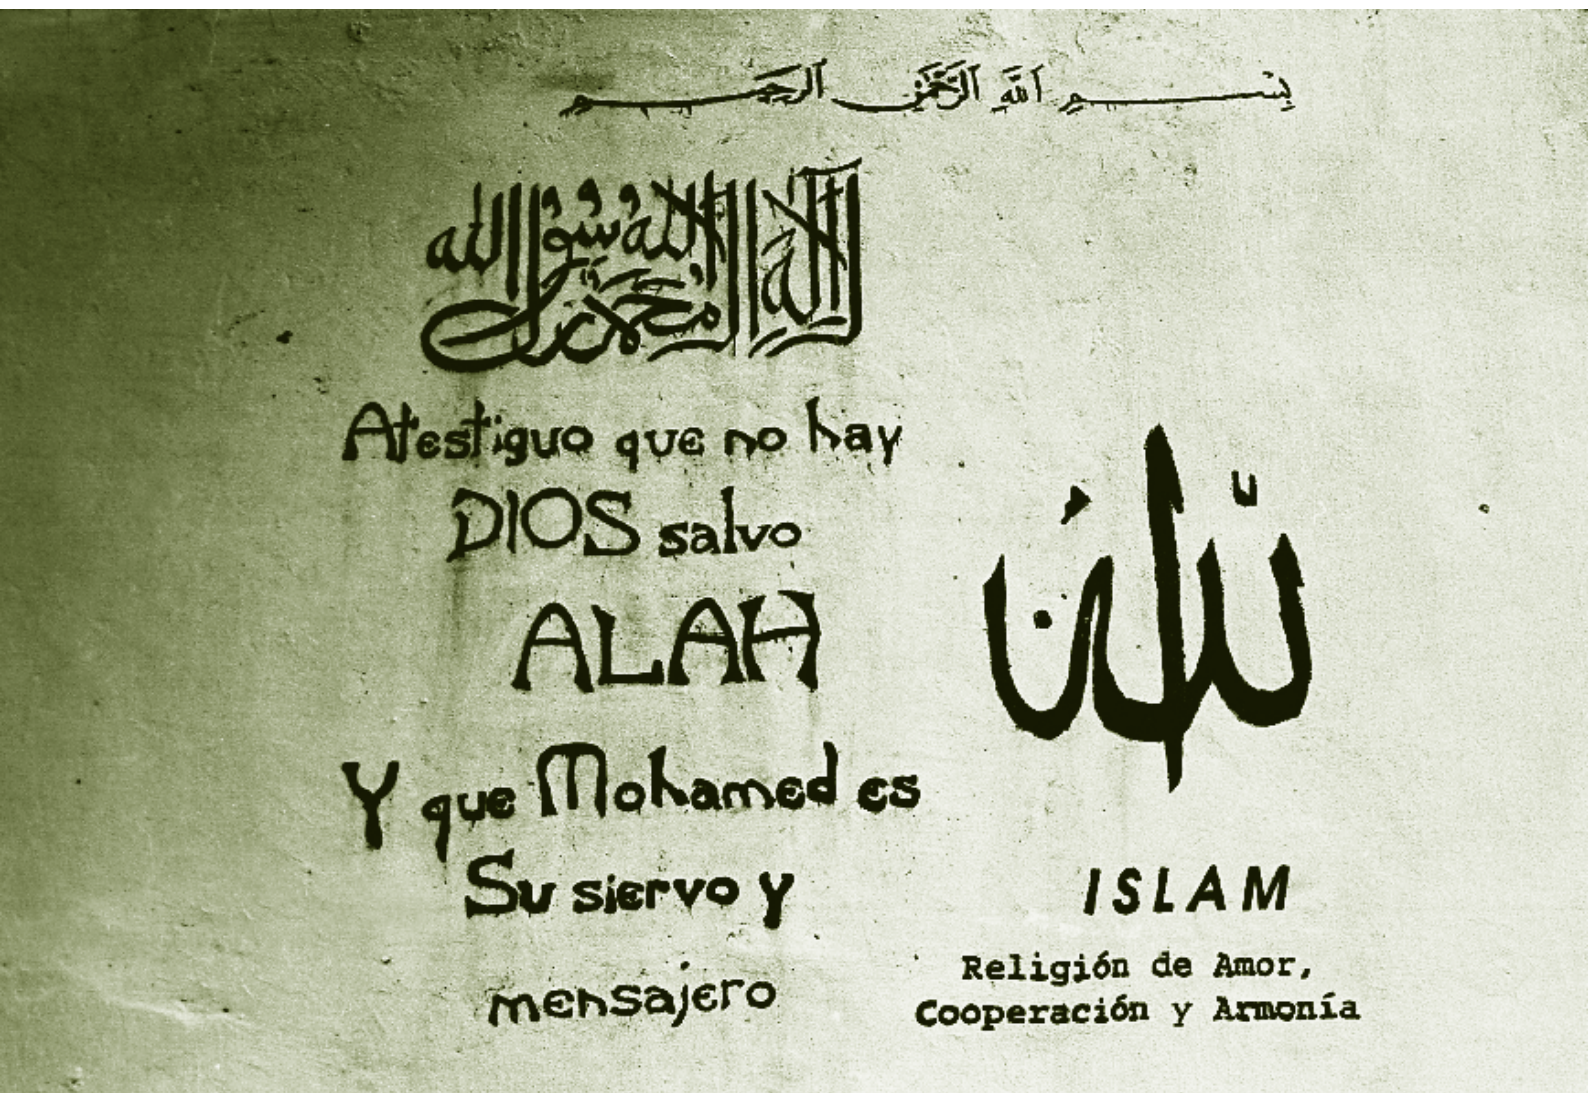 بِسْمِ اللَّهِ الرَّحْمَٰنِ الرَّحِيمِ
لا إله إلا الله محمد رسول الله
Atestiguo que no hay
DIOS salvo
ALAH
Y que Mohamed es
Su siervo y
mensajero
ISLAM
Religión de Amor,
Cooperación y Armonía